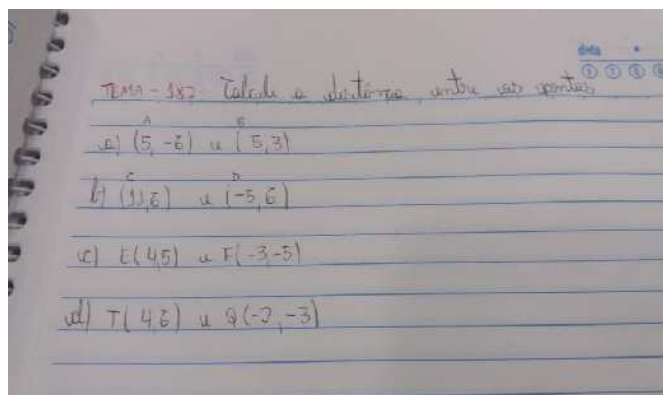 data
TEMA - 187 Calcule a distância entre os pontos
A B
a) (5, -6) e (5,3)
C D
b) (11,6) e (-5,6)
c) E(4,5) e F(-3,-5)
d) T(4,6) e Q(-2,-3)